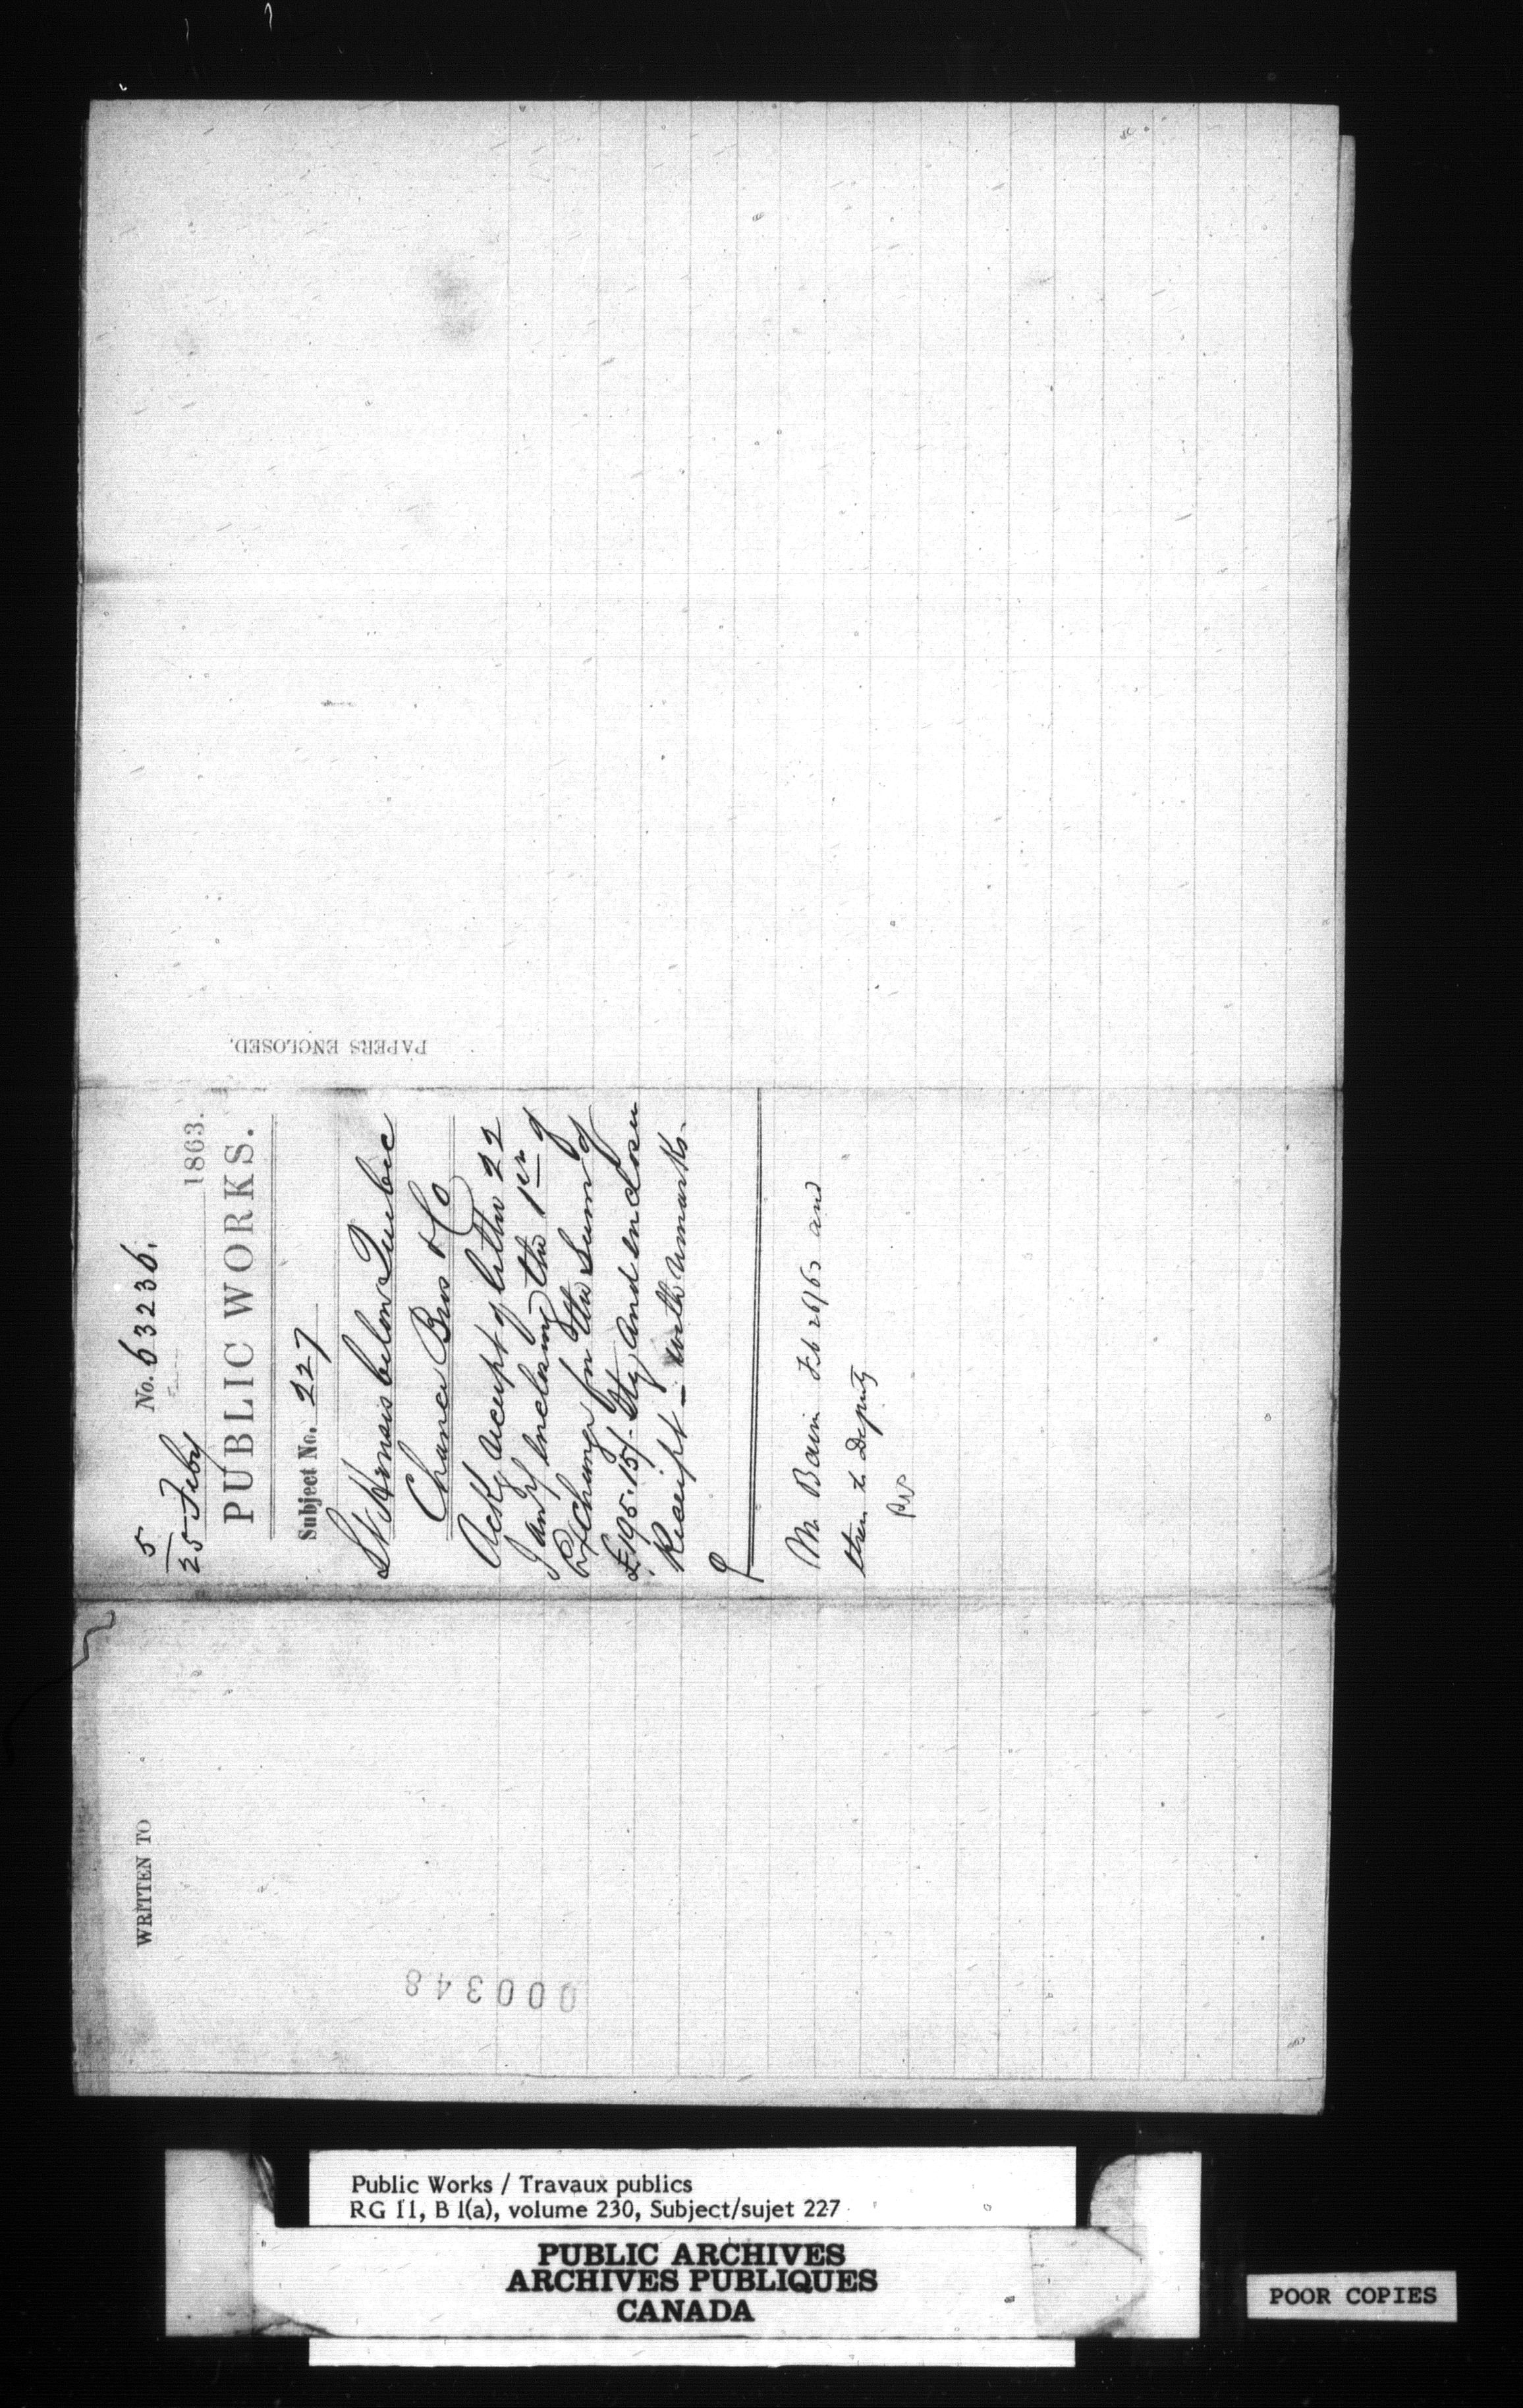 5
25 Feby No. 63236.
1863.
PUBLIC WORKS.
Subject No. 227
Lt Houses below Quebec
Chance Bros & Co
Ackg receipt of letter 22
Jany inclosing the 1st of
Exchange for the Sum of
£195.15/- Stg And enclose
Receipt _ with remarks.
Mr Bain Feb 26/63 and
then to Deputy
PAPERS ENCLOSED.
WRITTEN TO
000348
Public Works / Travaux publics
RG 11, B 1(a), volume 230, Subject/sujet 227
PUBLIC ARCHIVES
ARCHIVES PUBLIQUES
CANADA
POOR COPIES